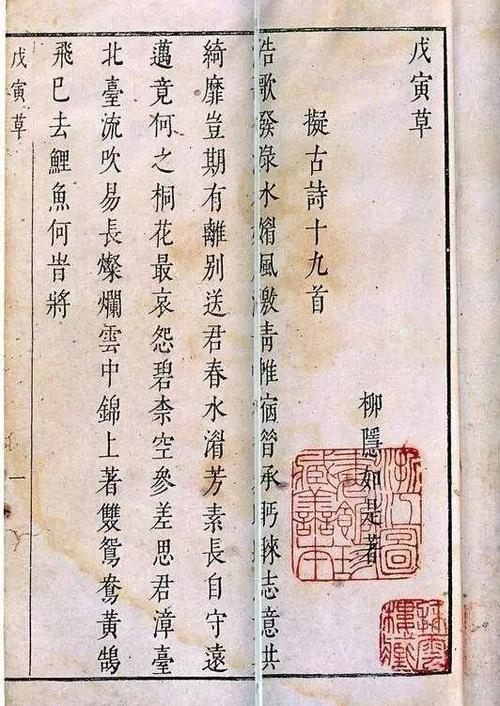 戊寅草
柳隱如是著
擬古詩十九首
浩歌發淥水風激青帷宿昔承眄睞志意共
綺靡豈期有離別送君春水湄芳素長自守遠
邁竟何之桐花最哀怨碧柰空參差思君漳臺
北臺流吹易長燦爛雲中錦上著雙鴛鴦黃鵠
飛巳去鯉魚何旹將
戊寅草
一
浙江圖書館珍藏善本